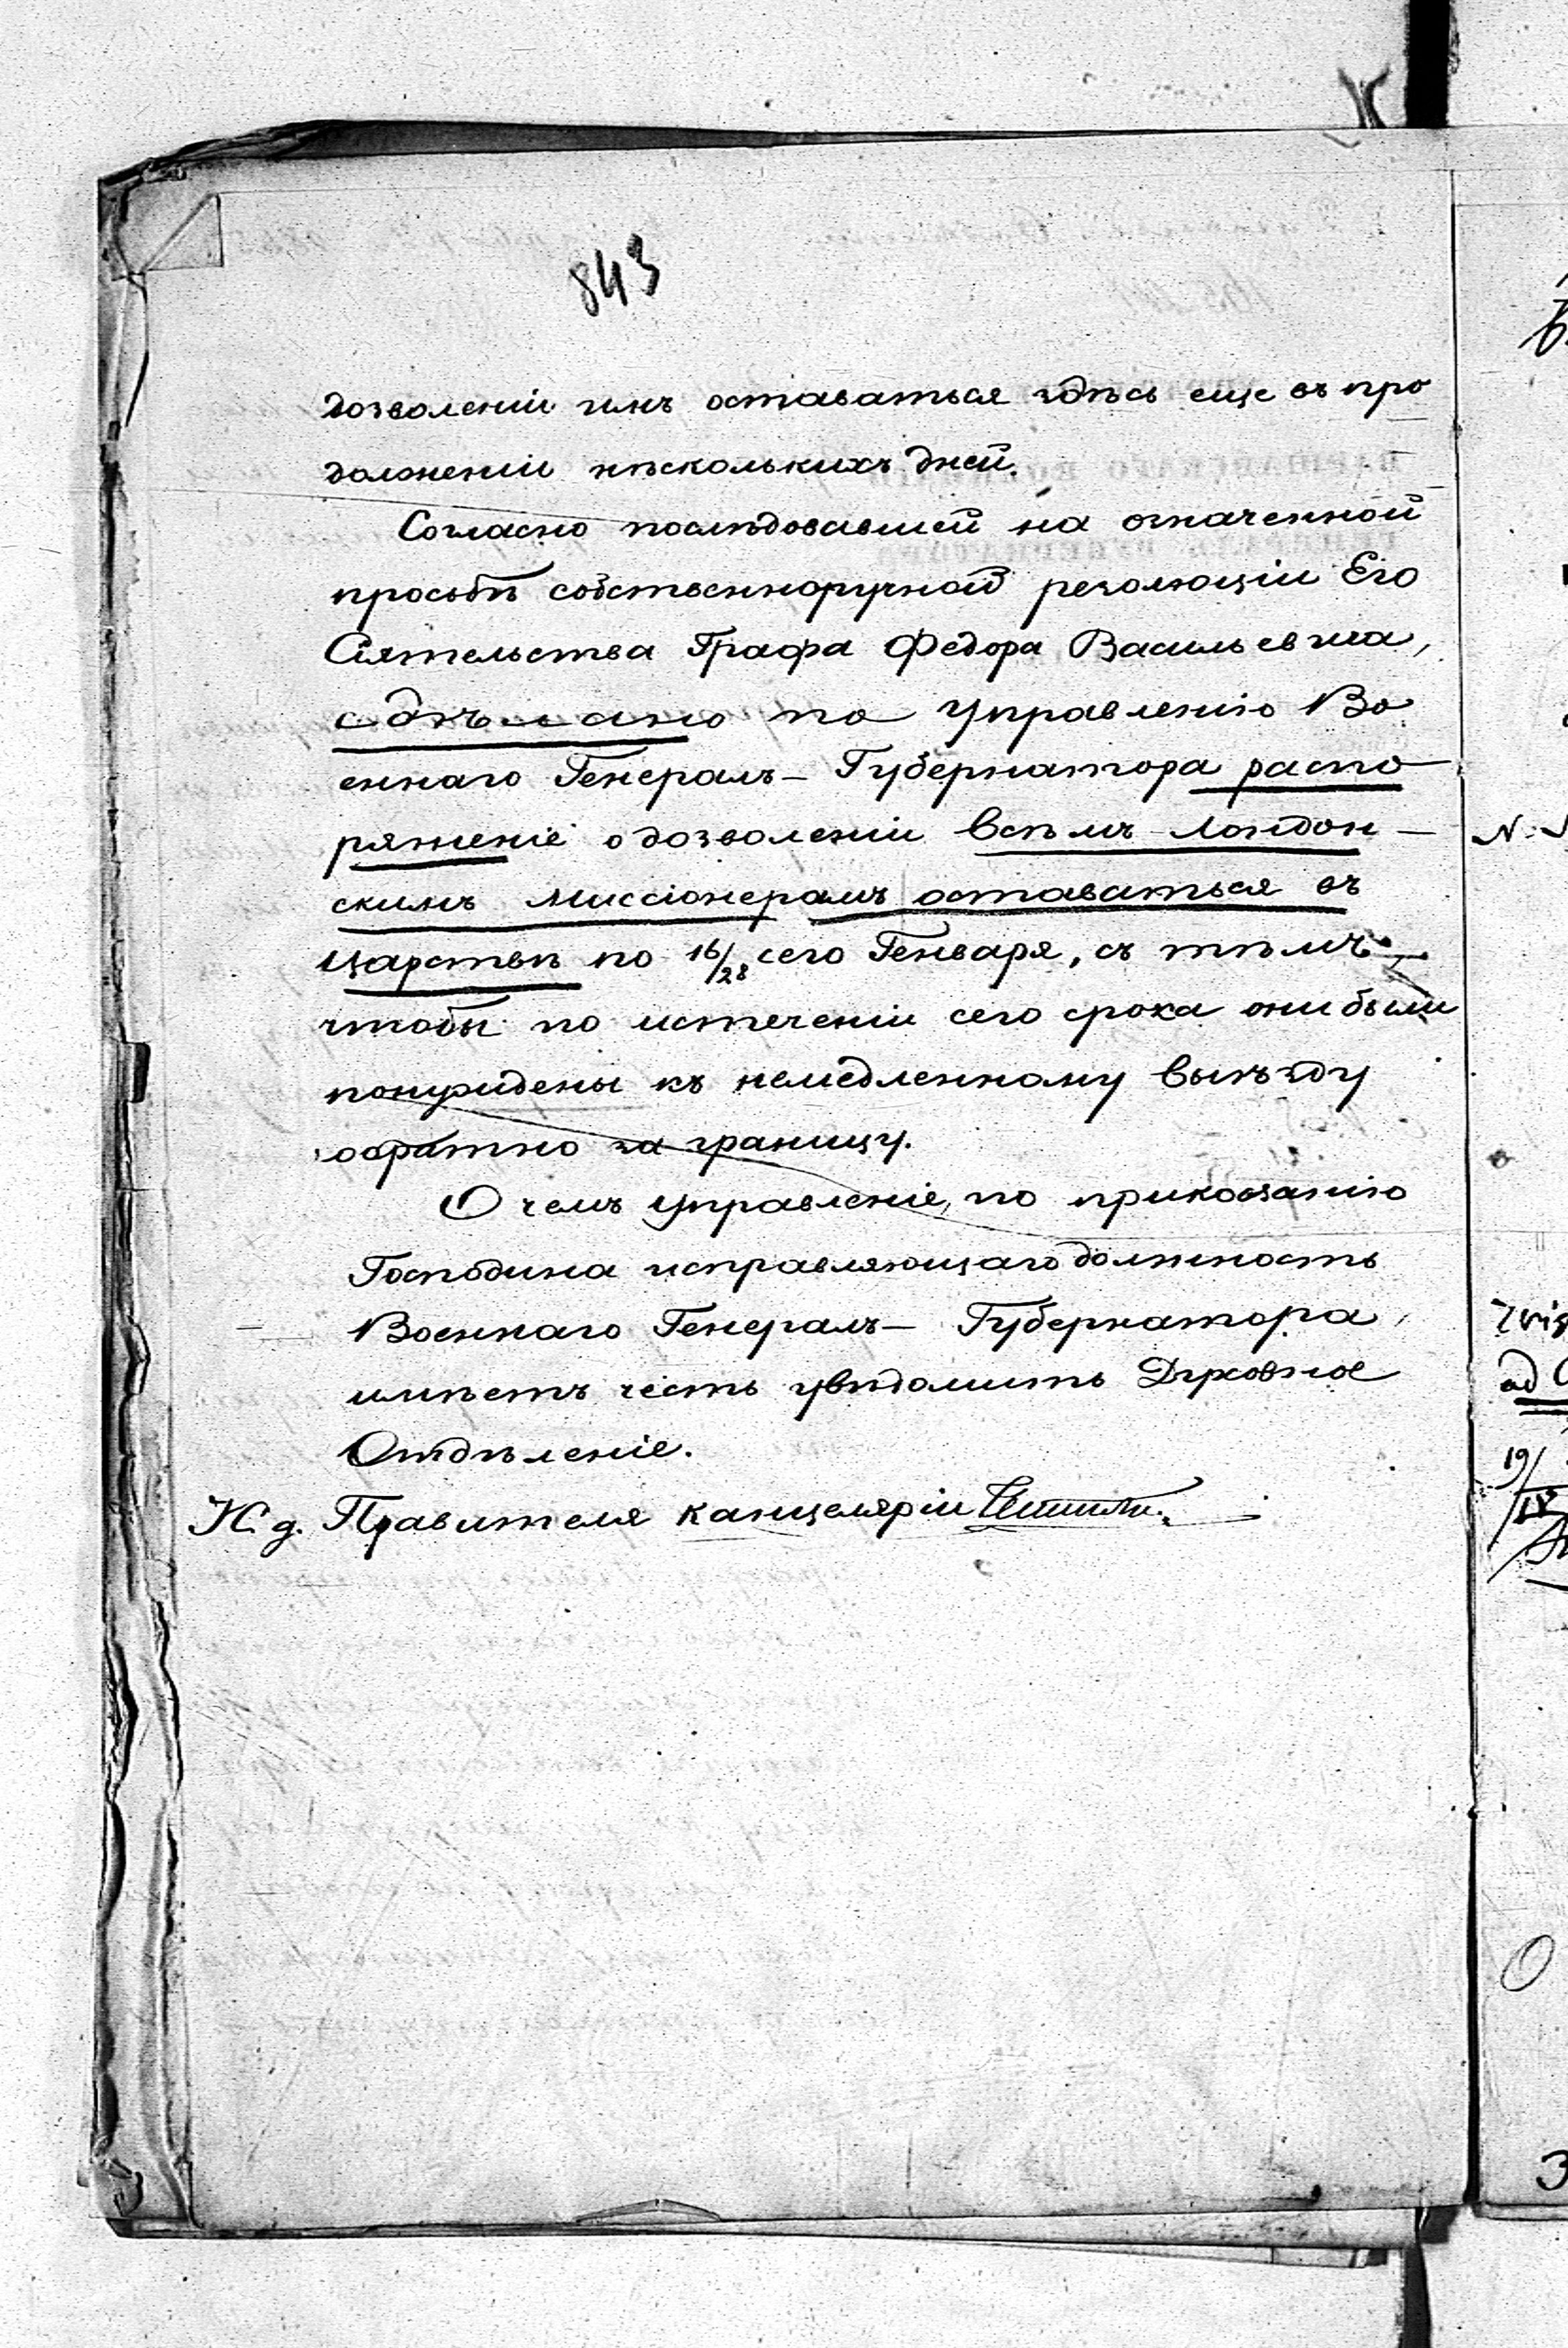 843
дозволеніи имъ оставаться здѣсь еще въ про
должении нѣсколькихъ дней.
Согласно послѣдовавшей на означенной
просьбѣ собственноручной резолюціи Его
Сіятельства Графа Федора Васильевича,
сдѣлано по Управленію Во
еннаго Генералъ- Губернатора распо-
ряженіе о дозволеніи всѣмъ Лондон-
скимъ Миссіонерамъ оставаться въ
Царствѣ по 16/28 сего Генваря, съ тѣмъ
чтобы по истеченіи сего срока они были
понуждены къ немедленному выѣзду
обратно за границу.
О чемъ Управленіе, по приказанію
Господина исправляющаго должность
Военнаго Генералъ- Губернатора,
имѣетъ честь увѣдомить Духовное
Отдѣленіе.
И. д. Правителя Канцеляріи
ad
19/IV